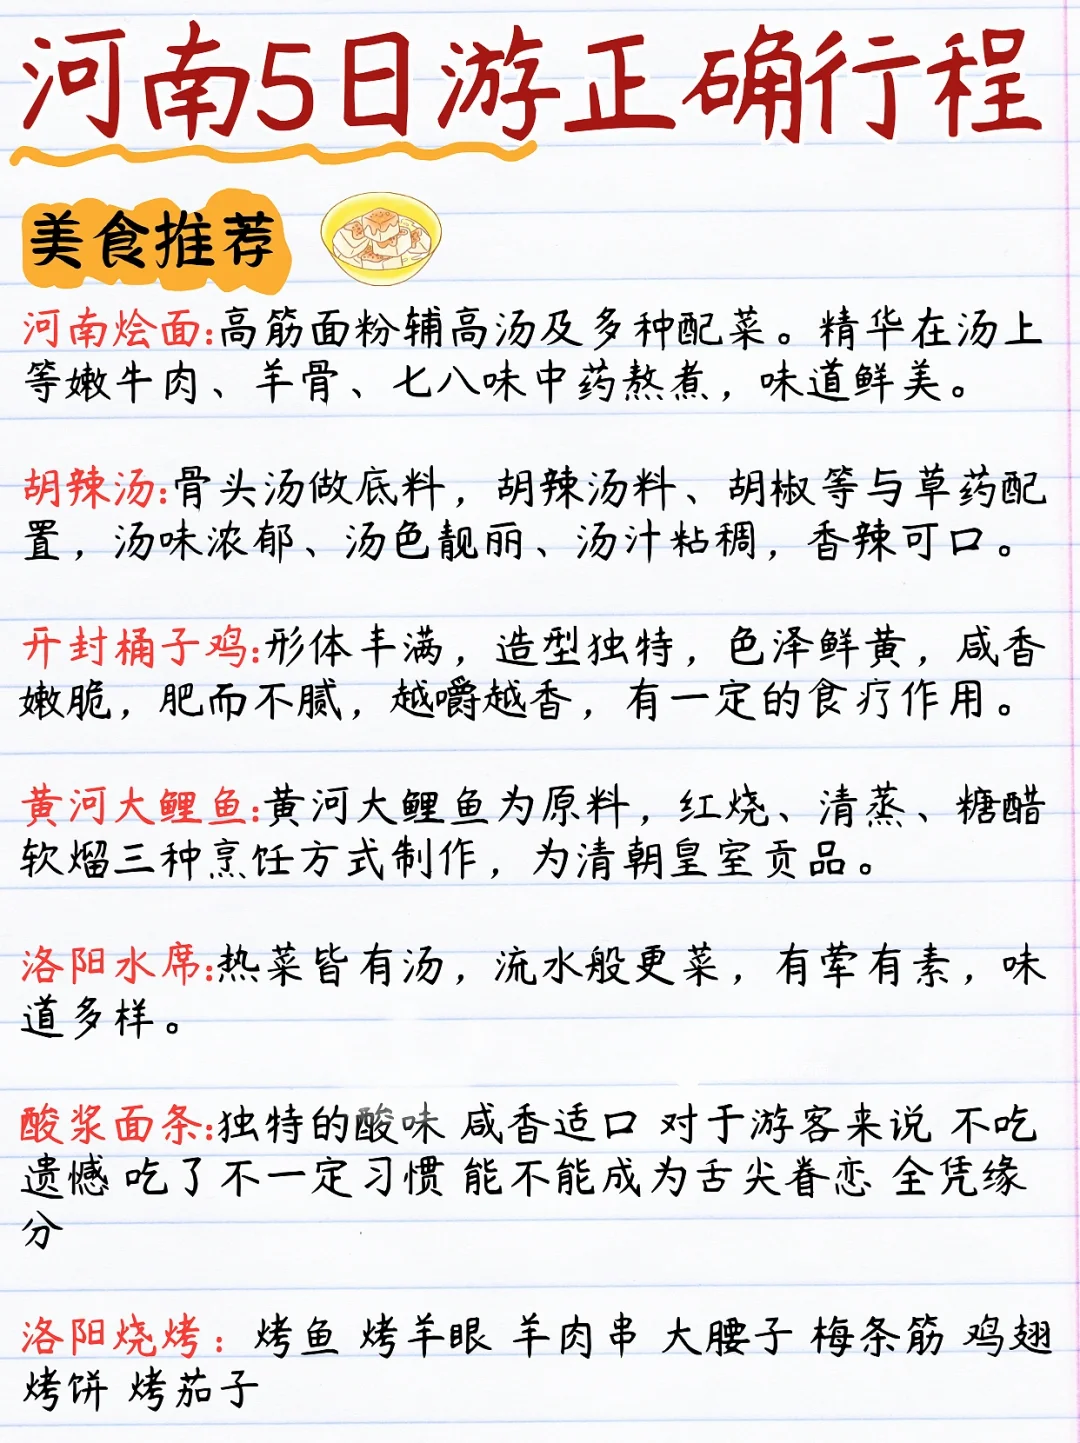 河南5日游正确行程
美食推荐
河南烩面:高筋面粉辅高汤及多种配菜。精华在汤上
等嫩牛肉、羊骨、七八味中药熬煮，味道鲜美。
胡辣汤:骨头汤做底料，胡辣汤料、胡椒等与草药配
置，汤味浓郁、汤色靓丽、汤汁粘稠，香辣可口。
开封桶子鸡:形体丰满，造型独特，色泽鲜黄，咸香
嫩脆，肥而不腻，越嚼越香，有一定的食疗作用。
黄河大鲤鱼:黄河大鲤鱼为原料，红烧、清蒸、糖醋
软熘三种烹饪方式制作，为清朝皇室贡品。
洛阳水席:热菜皆有汤，流水般更菜，有荤有素，味
道多样。
酸浆面条:独特的酸味 咸香适口 对于游客来说 不吃
遗憾 吃了不一定习惯 能不能成为舌尖眷恋 全凭缘
分
洛阳烧烤：烤鱼 烤羊眼 羊肉串 大腰子 梅条筋 鸡翅
烤饼 烤茄子